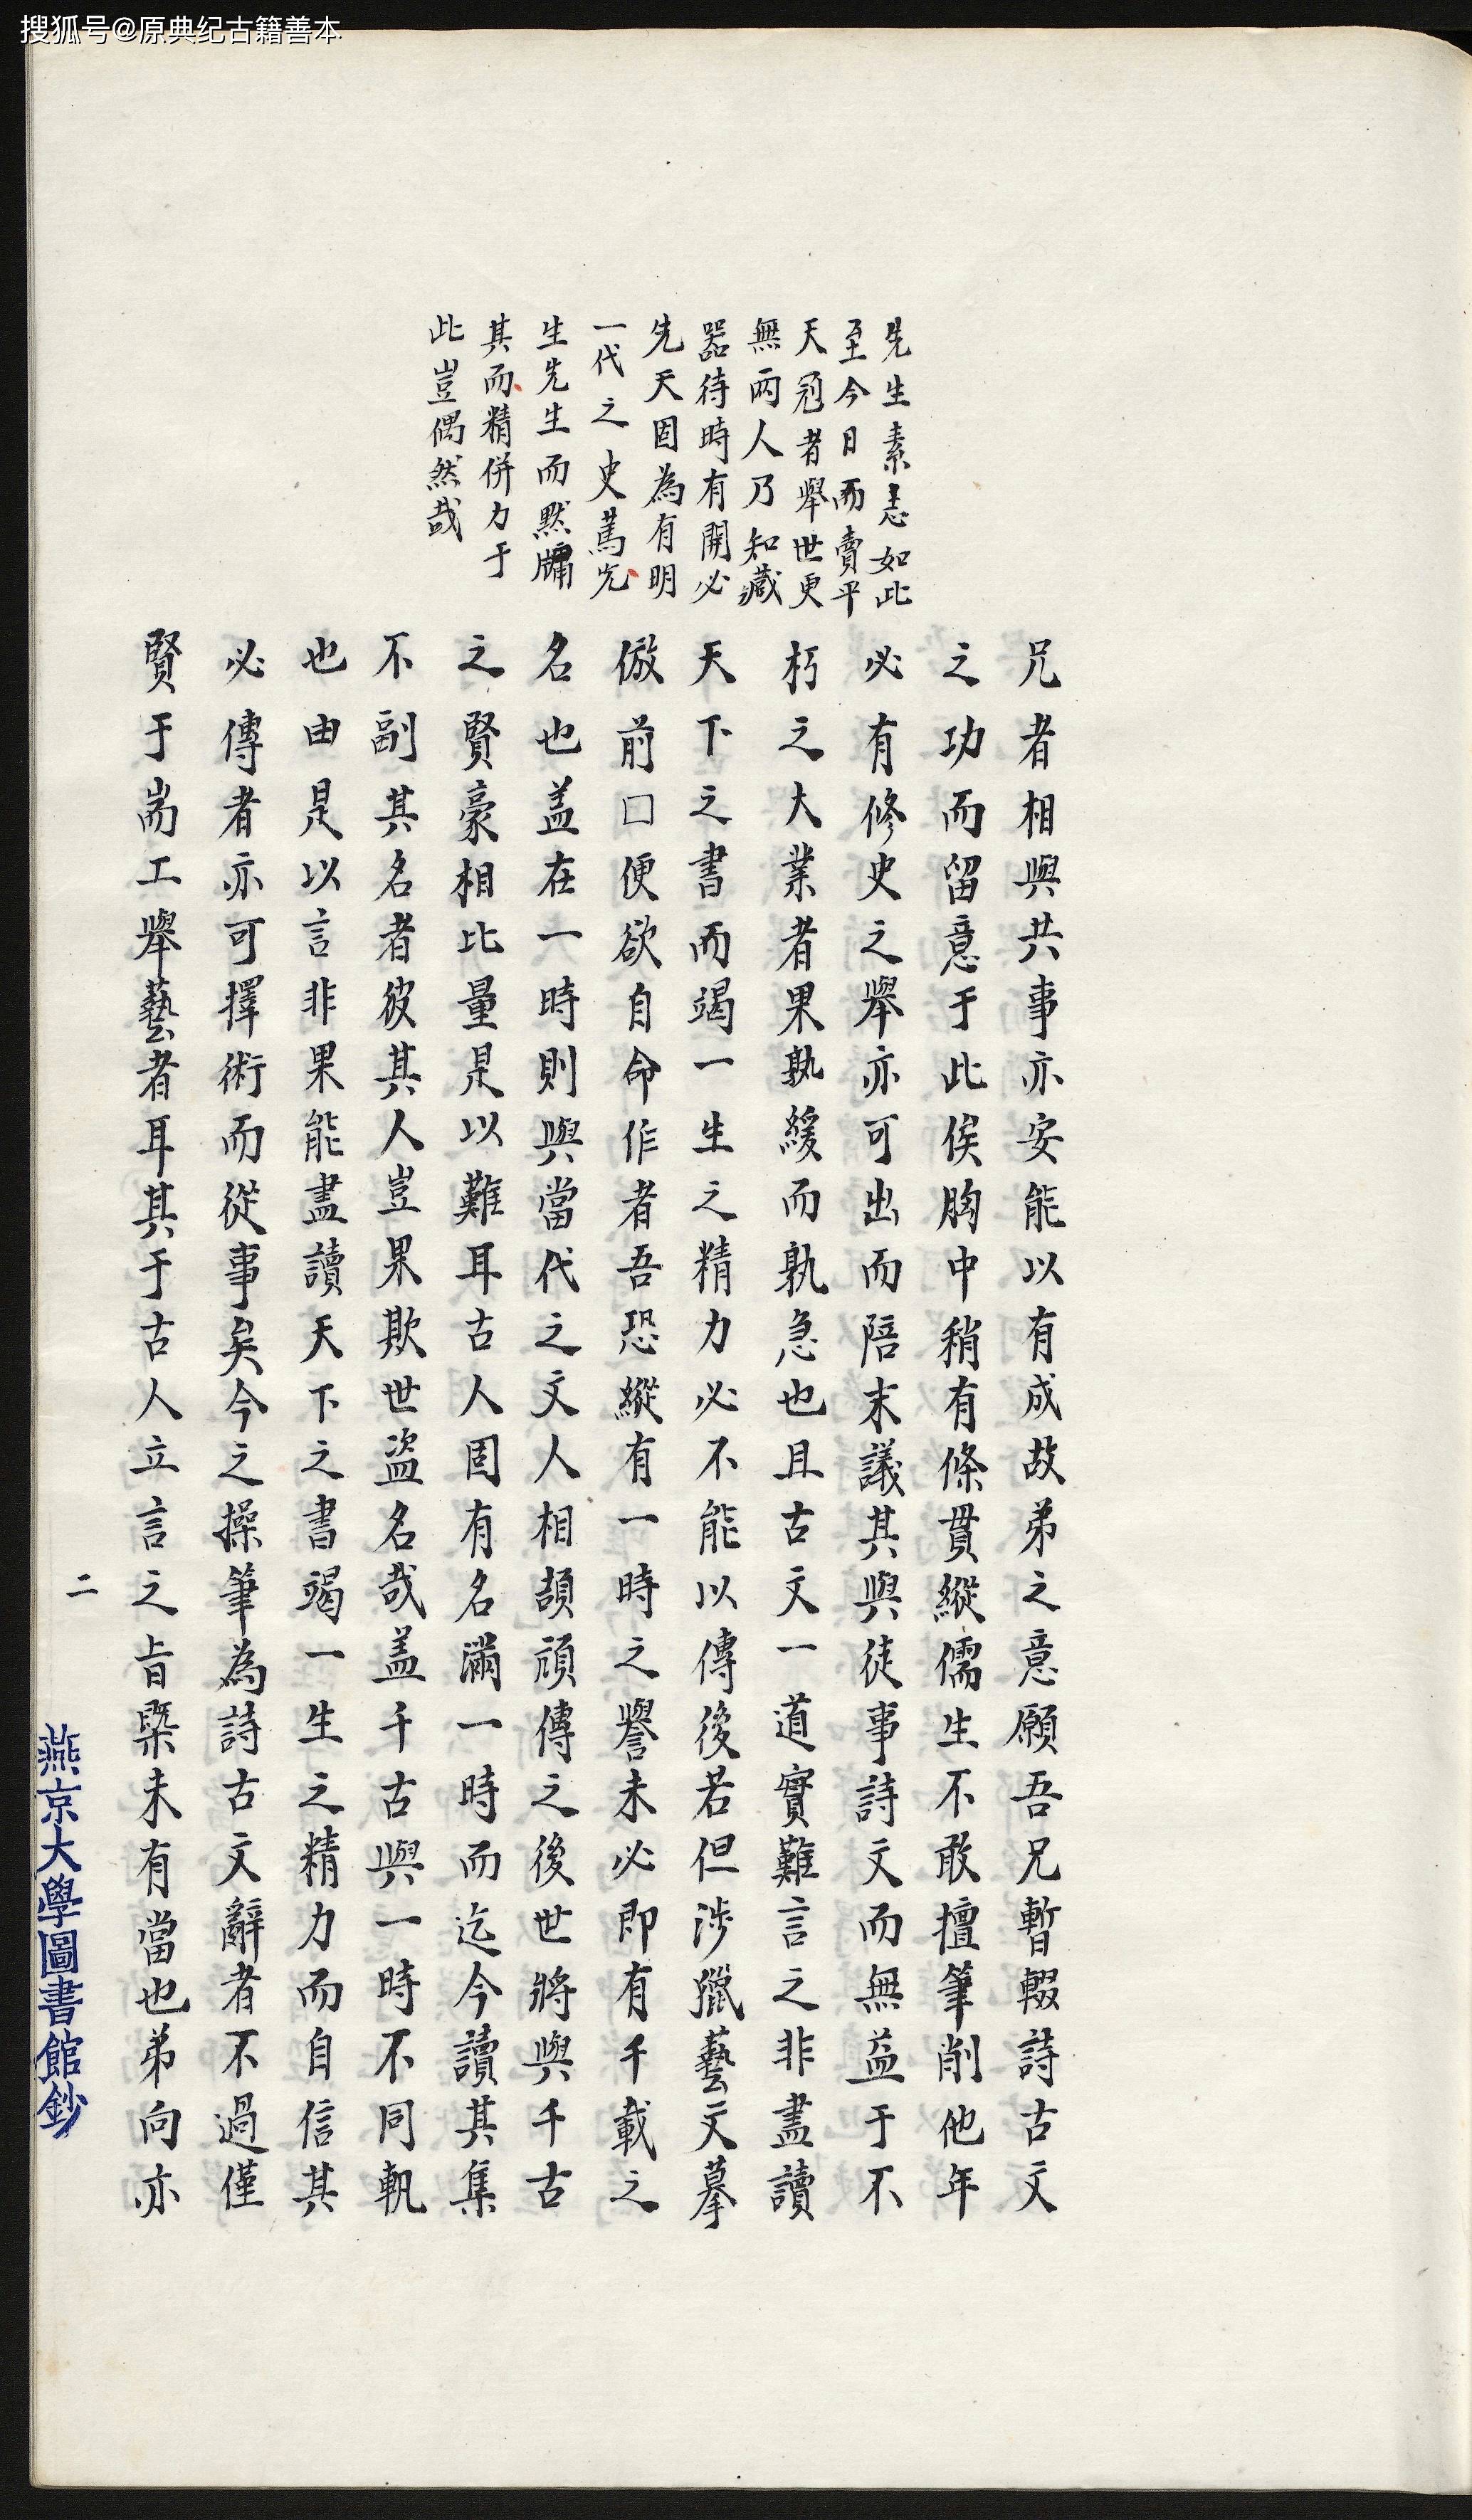 搜狐号@原典纪古籍善本
先生素志如此
至今日而賣平
天冠者舉世更
無兩人乃知藏
器待時有開必
先天固為有明
一代之史篤先
生先生而默牖
其而精併力于
此豈偶然哉
兄者相與共事亦安能以有成故弟之意願吾兄暫輟詩古文
之功而留意于此俟胸中稍有條貫縱儒生不敢擅筆削他年
必有修史之舉亦可出而陪末議其與徒事詩文而無益于不
朽之大業者果孰緩而孰急也且古文一道實難言之非盡讀
天下之書而竭一生之精力必不能以傳後若但涉獵藝文摹
倣前□便欲自命作者吾恐縱有一時之譽未必即有千載之
名也盖在一時則與當代之文人相頡頏傳之後世將與千古
之賢豪相比量是以難耳古人固有名滿一時而迄今讀其集
不副其名者彼其人豈果欺世盜名哉盖千古與一時不同軌
也由是以言非果能盡讀天下之書竭一生之精力而自信其
必傳者亦可擇術而從事矣今之操筆為詩古文辭者不過僅
賢于耑工舉藝者耳其于古人立言之旨槩未有當也弟向亦
二
燕京大學圖書館鈔